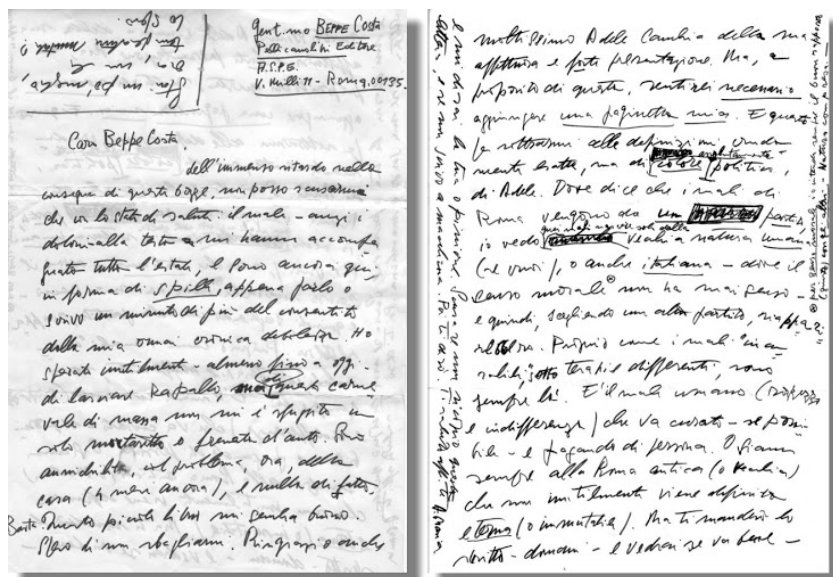 Gent.mo BEPPE COSTA
Pellicanolibri Editore
A.S.P.E.
V. Mulli 11 - Roma, 00135.
Sto un po' meglio,
Caro Beppe Costa,
dell'immenso ritardo nella
consegna di queste bozze, non posso scusarmi
che con lo stato di salute: il male - anzi i
dolori - alla testa mi hanno accompa
gnato tutta l'estate, e sono ancora qui,
in forma di spilli, appena parlo o
scrivo un minuto di più del consentito
dalla mia ormai cronica debolezza. Ho
sperato inutilmente - almeno fino a oggi -
di lasciare Rapallo, di questo carne
vale di massa non mi è sfuggito un
solo mortaretto o frenata d'auto. Sono
annichilita, col problema, ora, della
casa (4 mesi ancora), e nulla di fatto.
Basta. Questo piccolo libro mi sembra buono.
Spero di non sbagliarmi. Ringrazio anche
moltissimo Adele Cambria della sua
affettuosa e forte presentazione. Ma, a
proposito di questa, sentirei necessario
aggiungere una paginetta mia. E questo
per sottrarmi alle definizioni, umana
mente esatte, ma di colore politico,
di Adele. Dove dice che i mali di
Roma vengono da un partito
io vedo quei mali a via sola della vecchia natura umana
(se vuoi), o anche italiana - dove il
senso morale non ha mai senso
e quindi, scegliendo un altro partito, riappare
Proprio come i mali "incu
rabili", sotto terapie differenti, sono
sempre lì. E' il male umano
e indifferenza) che va curato - se possi
bile - e pagando di persona. O siamo
sempre alla Roma antica (o vecchia)
che non inutilmente viene definita
eterna (o immutabile). Ma ti manderò lo
scritto - domani - e vedrai se va bene -
e mi dirai la tua opinione. Scusa se non ricopio questa
lettera, e se non scrivo a macchina.